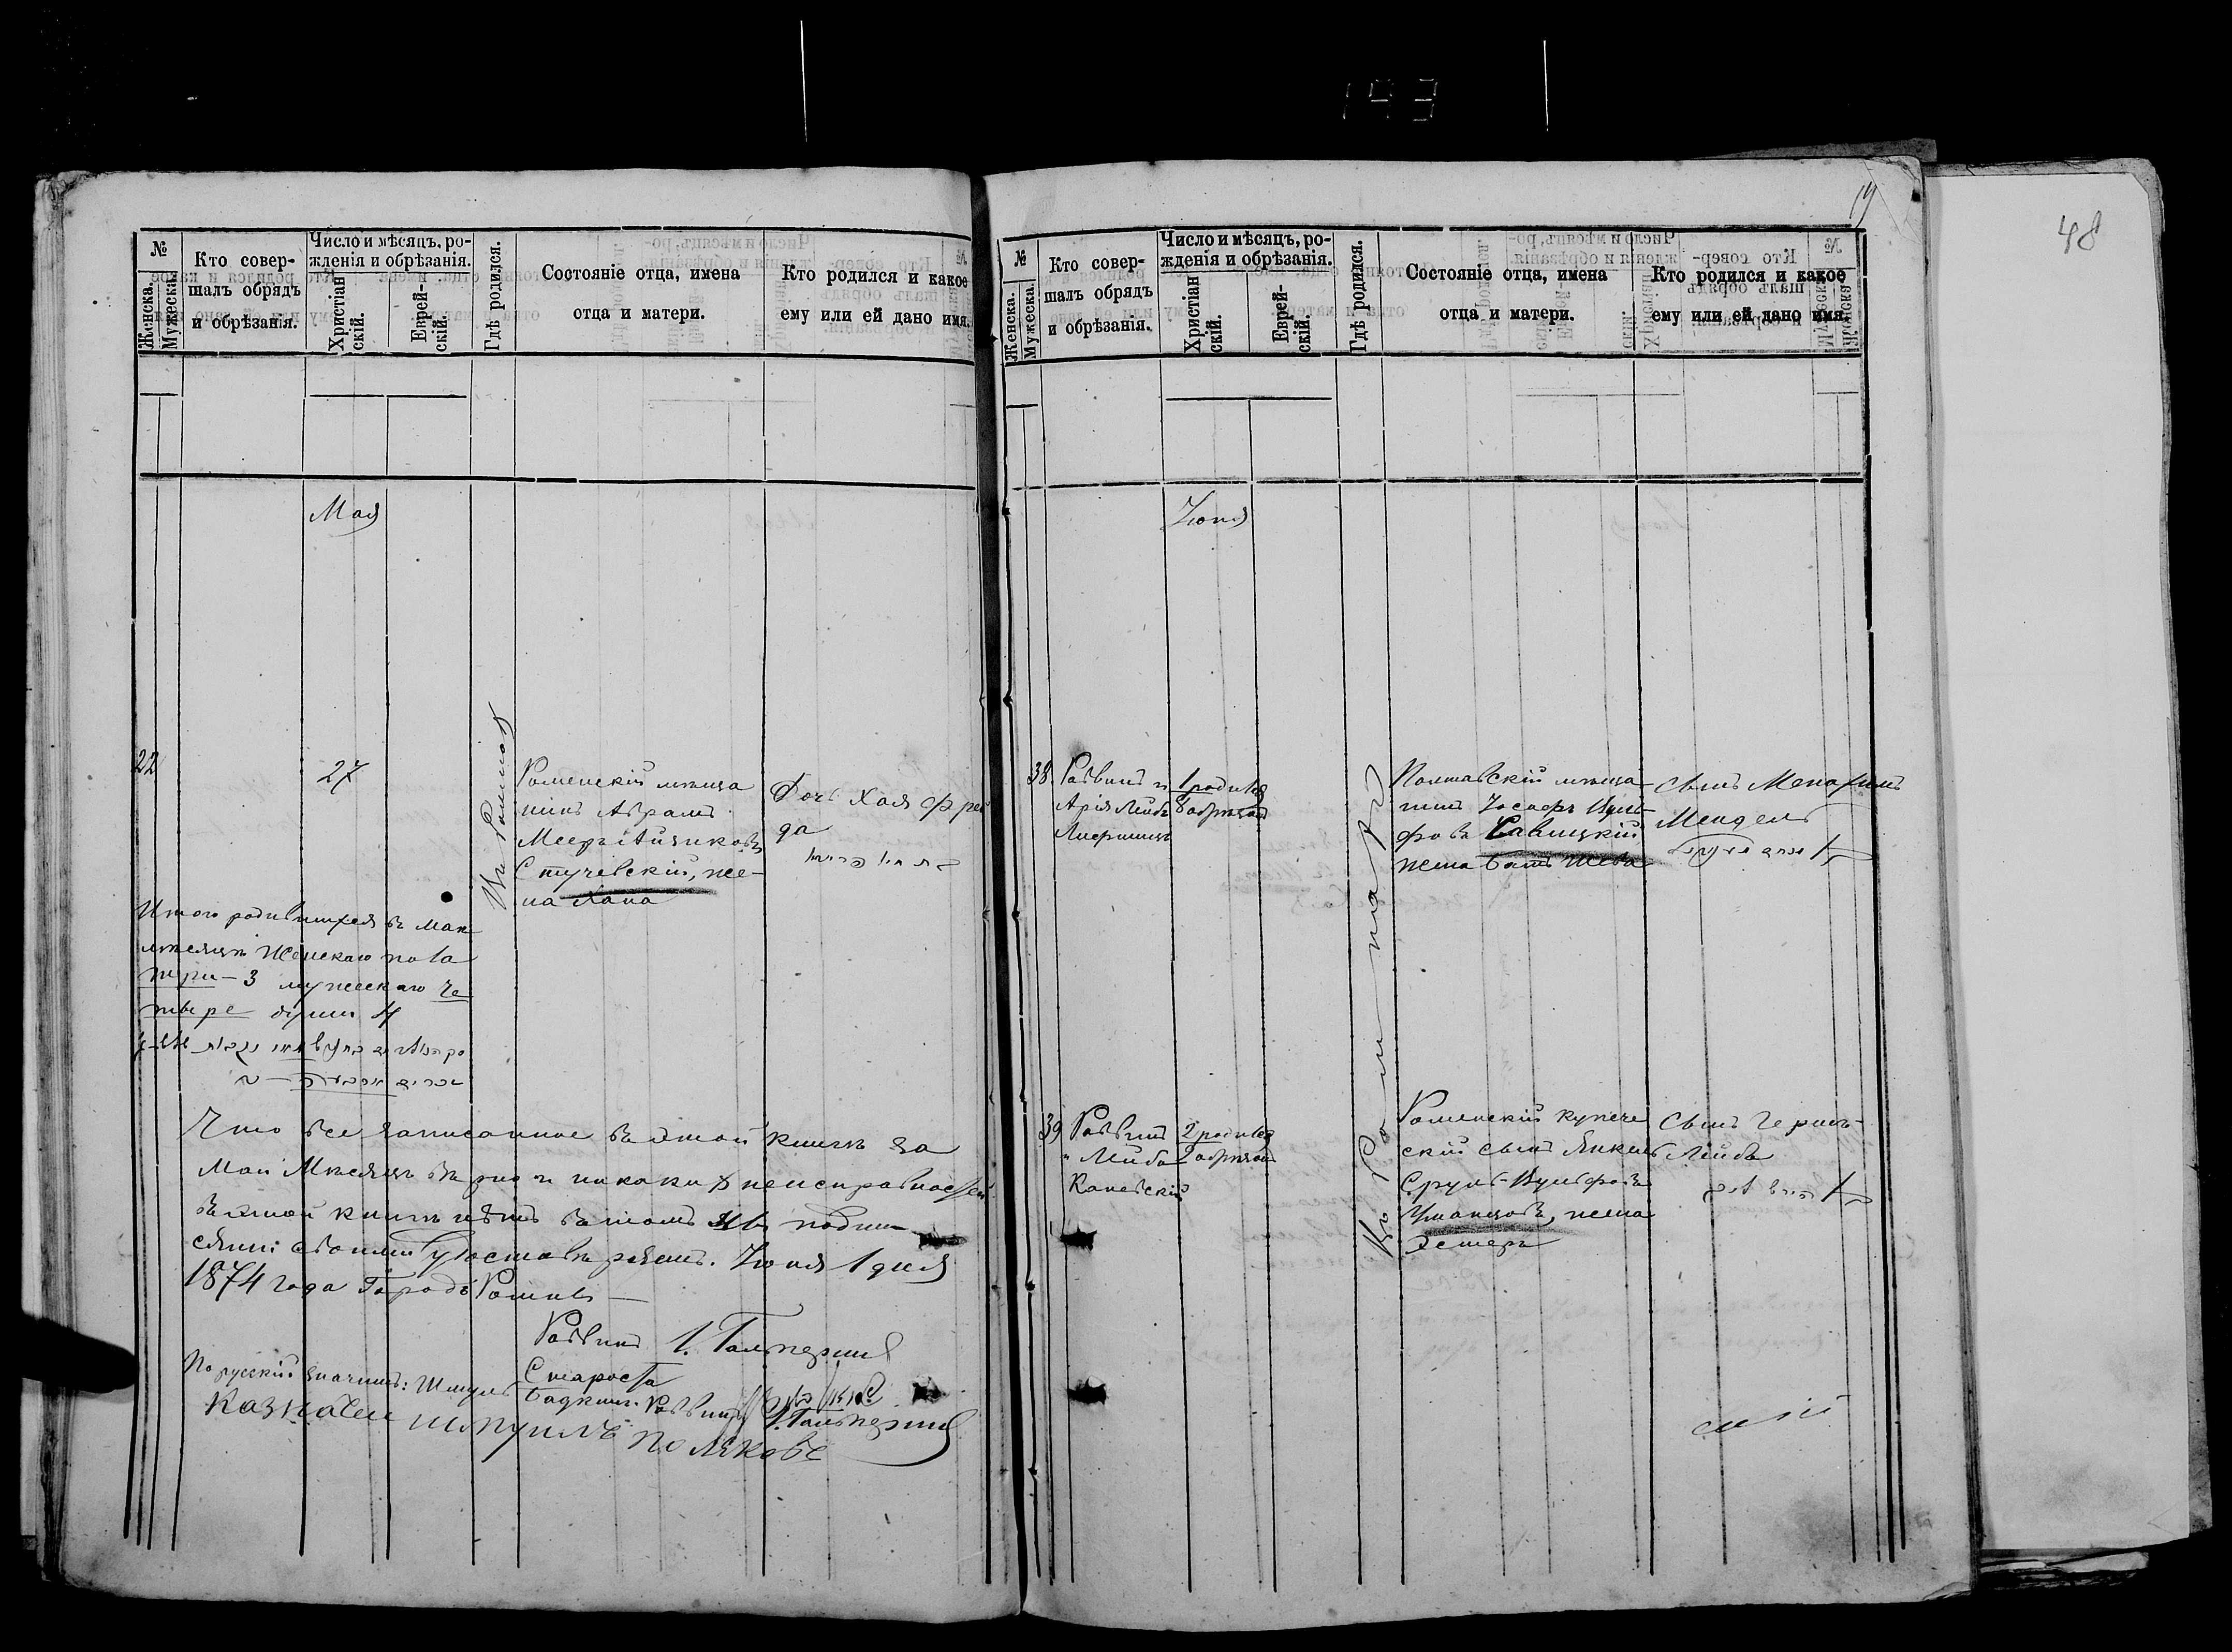 193
№
Женска.
Мужеска.
Кто совер-
шалъ обрядъ
и обрѣзанія.
Число и мѣсяцъ, ро-
жденія и обрѣзанія.
Христіан
скій.
Еврей-
скій.
Гдѣ родился.
Состояніе отца, имена
отца и матери.
Кто родился и какое
ему или ей дано имя.
Мая
22
27
Въ Ромнахъ
Роменскій мѣща
нинъ Абрамъ
Меер Айзиковъ
Стучевскій, же-
на Хана
Дочь Хая Фрей
да
Итого родившихся въ Маѣ
мѣсяцѣ Женскаго пола
три – 3 мужескаго че
тыре души 4
Что все записанное въ этой книгѣ за
Май Мѣсяцъ вѣрно и никакихъ неисправностей
въ этой книгѣ нѣтъ въ томъ мы подпи-
сями своими удостовѣряемъ. Іюня 1 дня
1874 года Городъ Ромны –
Раввинъ І. Гальперинъ
Староста
По русскій значитъ: Шмуль Бадкинъ. Раввинъ І. Гальперинъ
Казначеи Шмуилъ Поляковъ
19
48
№
Женска.
Мужеска.
Кто совер-
шалъ обрядъ
и обрѣзанія.
Число и мѣсяцъ, ро-
жденія и обрѣзанія.
Христіан
скій.
Еврей-
скій.
Гдѣ родился.
Состояніе отца, имена
отца и матери.
Кто родился и какое
ему или ей дано имя.
Іюня
38
Раввинъ и
Арія Лейбъ
1 родился
8 обрѣзанъ
Въ Ромнахъ
Полтавскій мѣща
нинъ Іосифъ Вуль-
фовъ Савицкій
жена Батъ Шева
Сынъ Менахимъ
Мендель
39
Раввинъ
" Лейба
Каневскій
2 родился
9 обрѣзанъ
Роменскій купече
скій сынъ Янкель
Сруль-Вульфовъ
Уманцовъ, жена
Эстеръ
Сынъ Герш-
Лейба